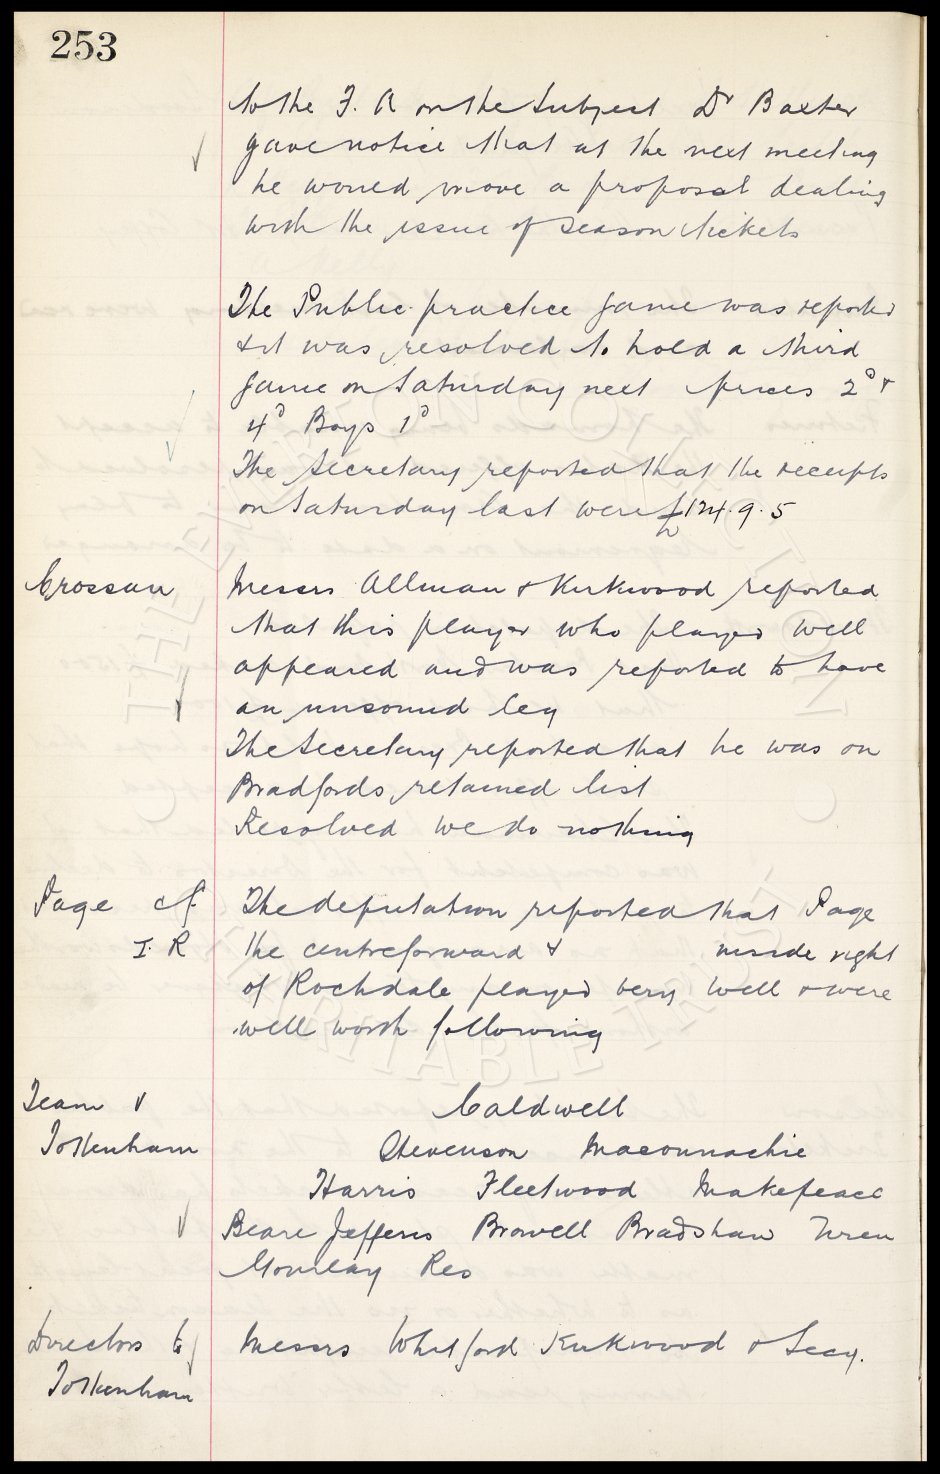 253
to the F. A on the subject Dr Baxter
gave notice that at the next meeting
he would move a proposal dealing
with the issue of season tickets
The Public practice game was reported
& it was resolved to hold a third
game on Saturday next prices 2d &
4d Boys 1d
The Secretary reported that the receipts
on Saturday last were £124.9.5
Crossan Messrs Allman & Kirkwood reported
that this player who played well
appeared and was reported to have
an unsound leg
The Secretary reported that he was on
Bradfords retained list
Resolved we do nothing
Page cf The deputation reported that Page
I. R the centreforward & inside right
of Rochdale played very well & were
well worth following
Team v Caldwell
Tottenham Stevenson Maconnachie
Harris Fleetwood Makepeace
Beare Jefferis Browell Bradshaw Uren
Gourlay Res
Directors to Messrs Whitford Kirkwood & Secy.
Tottenham